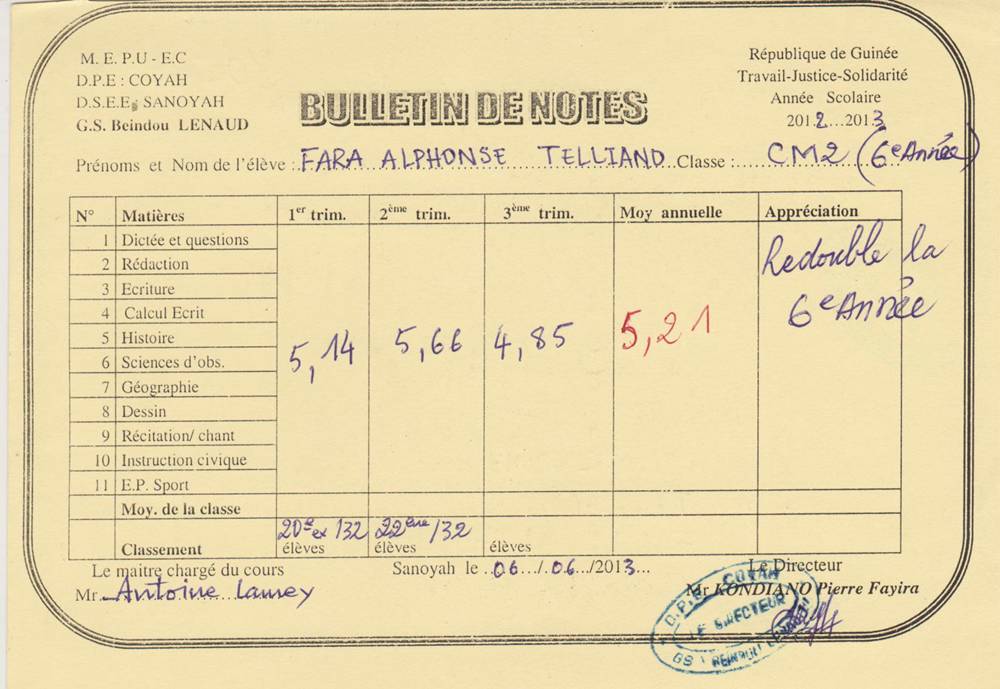 M. E. P.U - E.C
D.P.E : COYAH
D.S.E.E. SANOYAH
G.S. Beindou LENAUD
BULLETIN DE NOTES
République de Guinée
Travail-Justice-Solidarité
Année Scolaire
2012...2013
Prénoms et Nom de l'élève : FARA ALPHONSE TELLIANO Classe : CM2 (6e Année)
N° Matières 1er trim. 2ème trim. 3ème trim. Moy annuelle Appréciation
1 Dictée et questions
2 Rédaction
3 Ecriture
4 Calcul Ecrit
5 Histoire
6 Sciences d'obs.
7 Géographie
8 Dessin
9 Récitation/ chant
10 Instruction civique
11 E.P. Sport
5,14 5,66 4,85 5,21
Redouble la
6e Année
Moy. de la classe
20e ex /32 22ème /32
Classement élèves élèves élèves
Le maitre chargé du cours
Mr Antoine Lamey
Sanoyah le 06/06/2013
Le Directeur
Mr KONDIANO Pierre Fayira
D.P.E COYAH
LE DIRECTEUR
GS